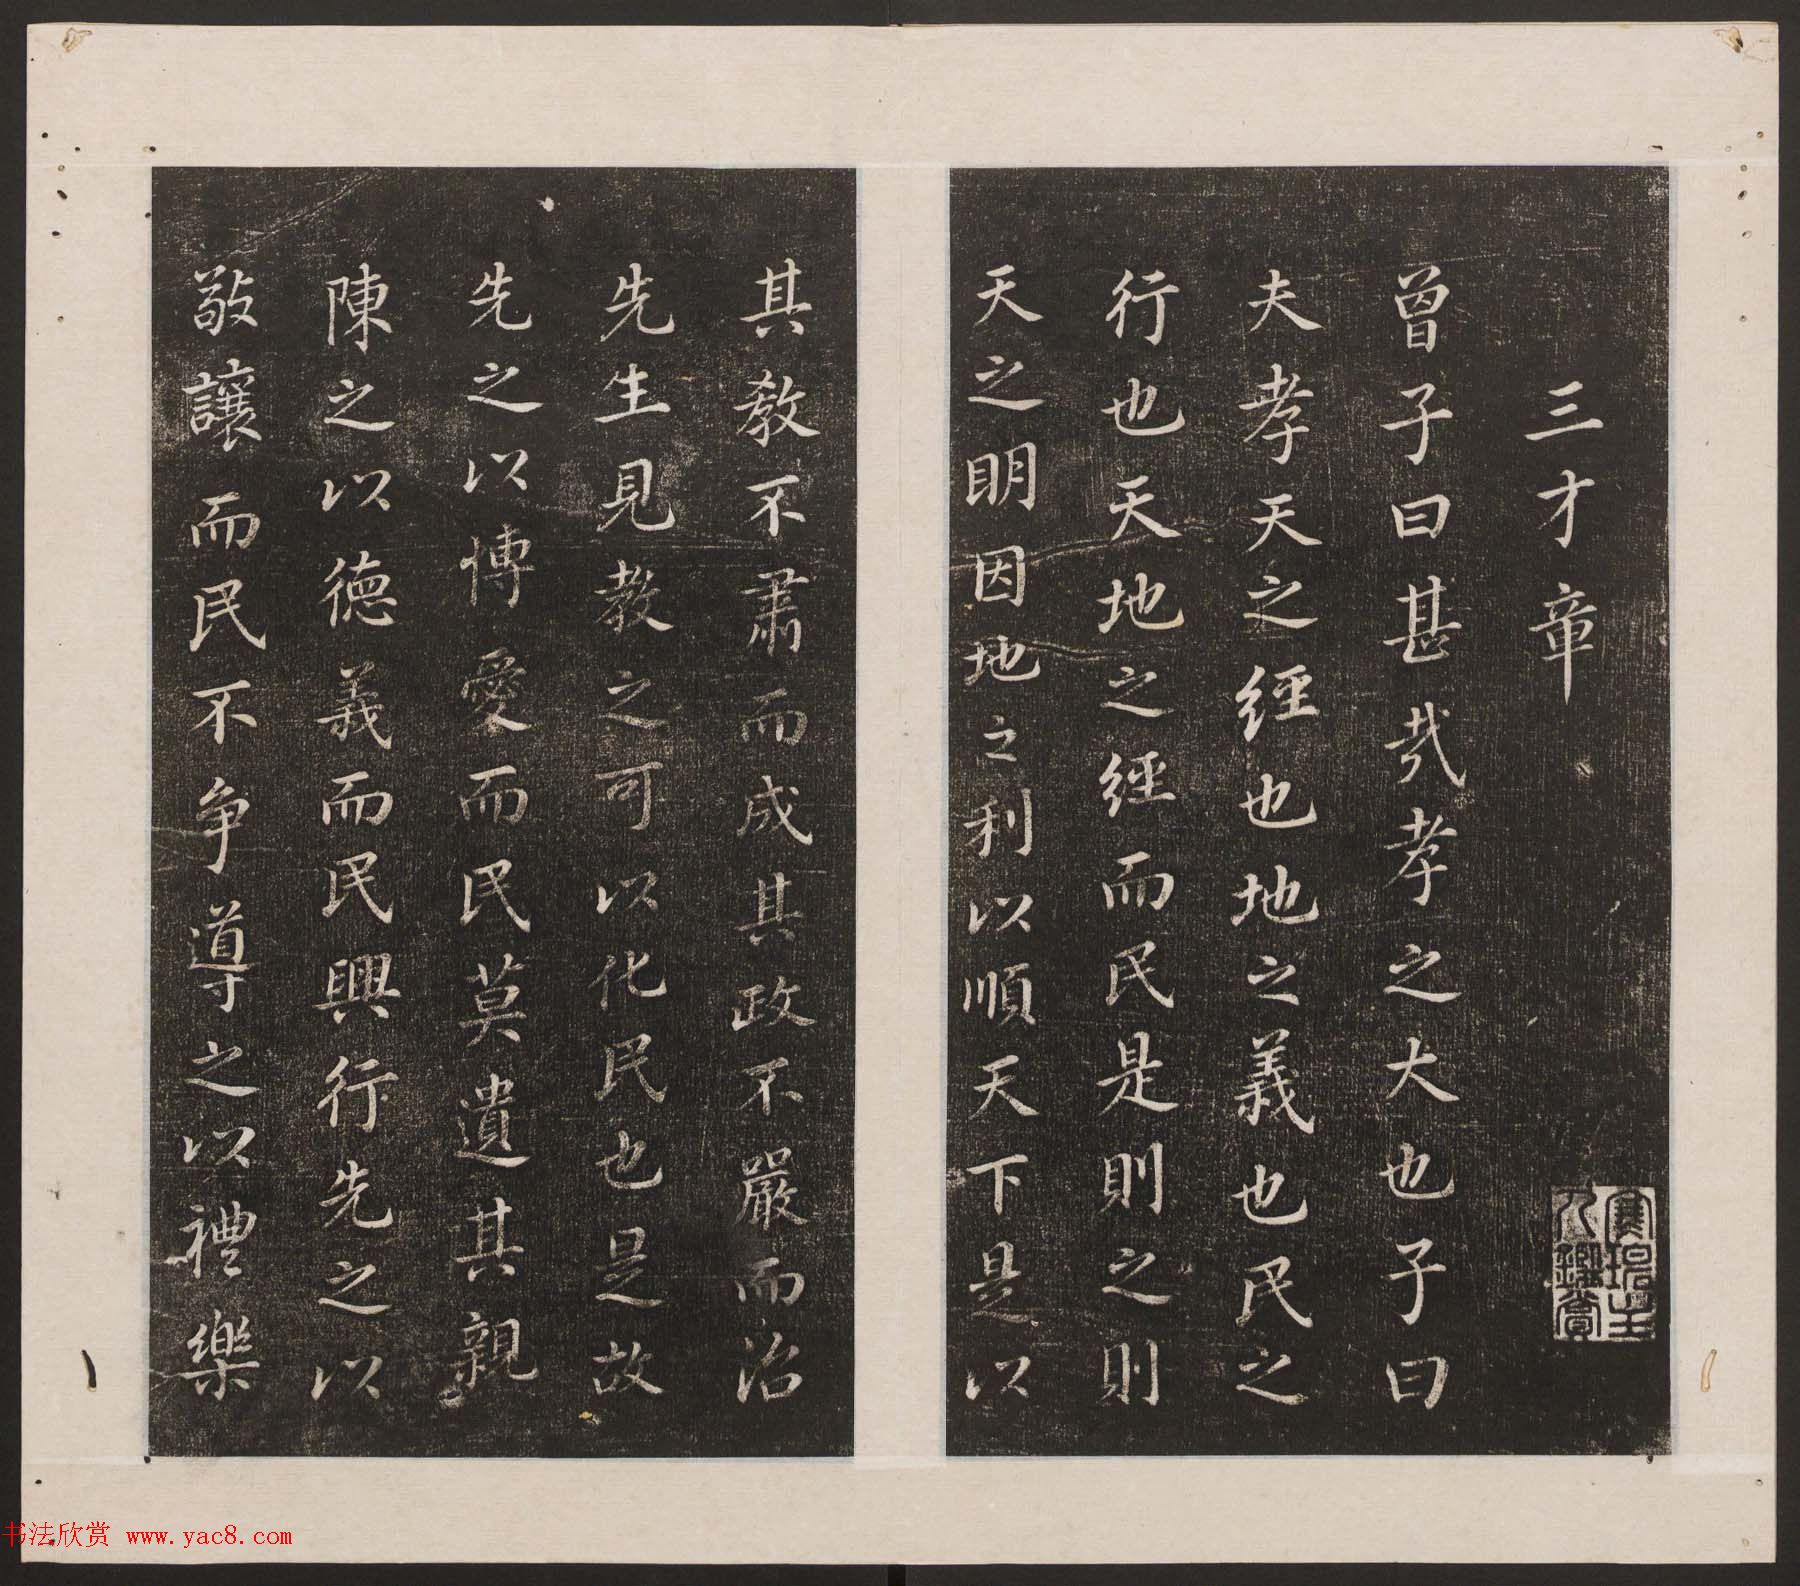 三才章
曾子曰甚哉孝之大也子曰
夫孝天之經也地之義也民之
行也天地之經而民是則之則
天之眀因地之利以順天下是以
主人鑑賞
其教不肅而成其政不嚴而治
先生見教之可以化民也是故
先之以博愛而民莫遺其親
陳之以德義而民興行先之以
敬讓而民不争導之以禮樂
书法欣赏 www.yac8.com